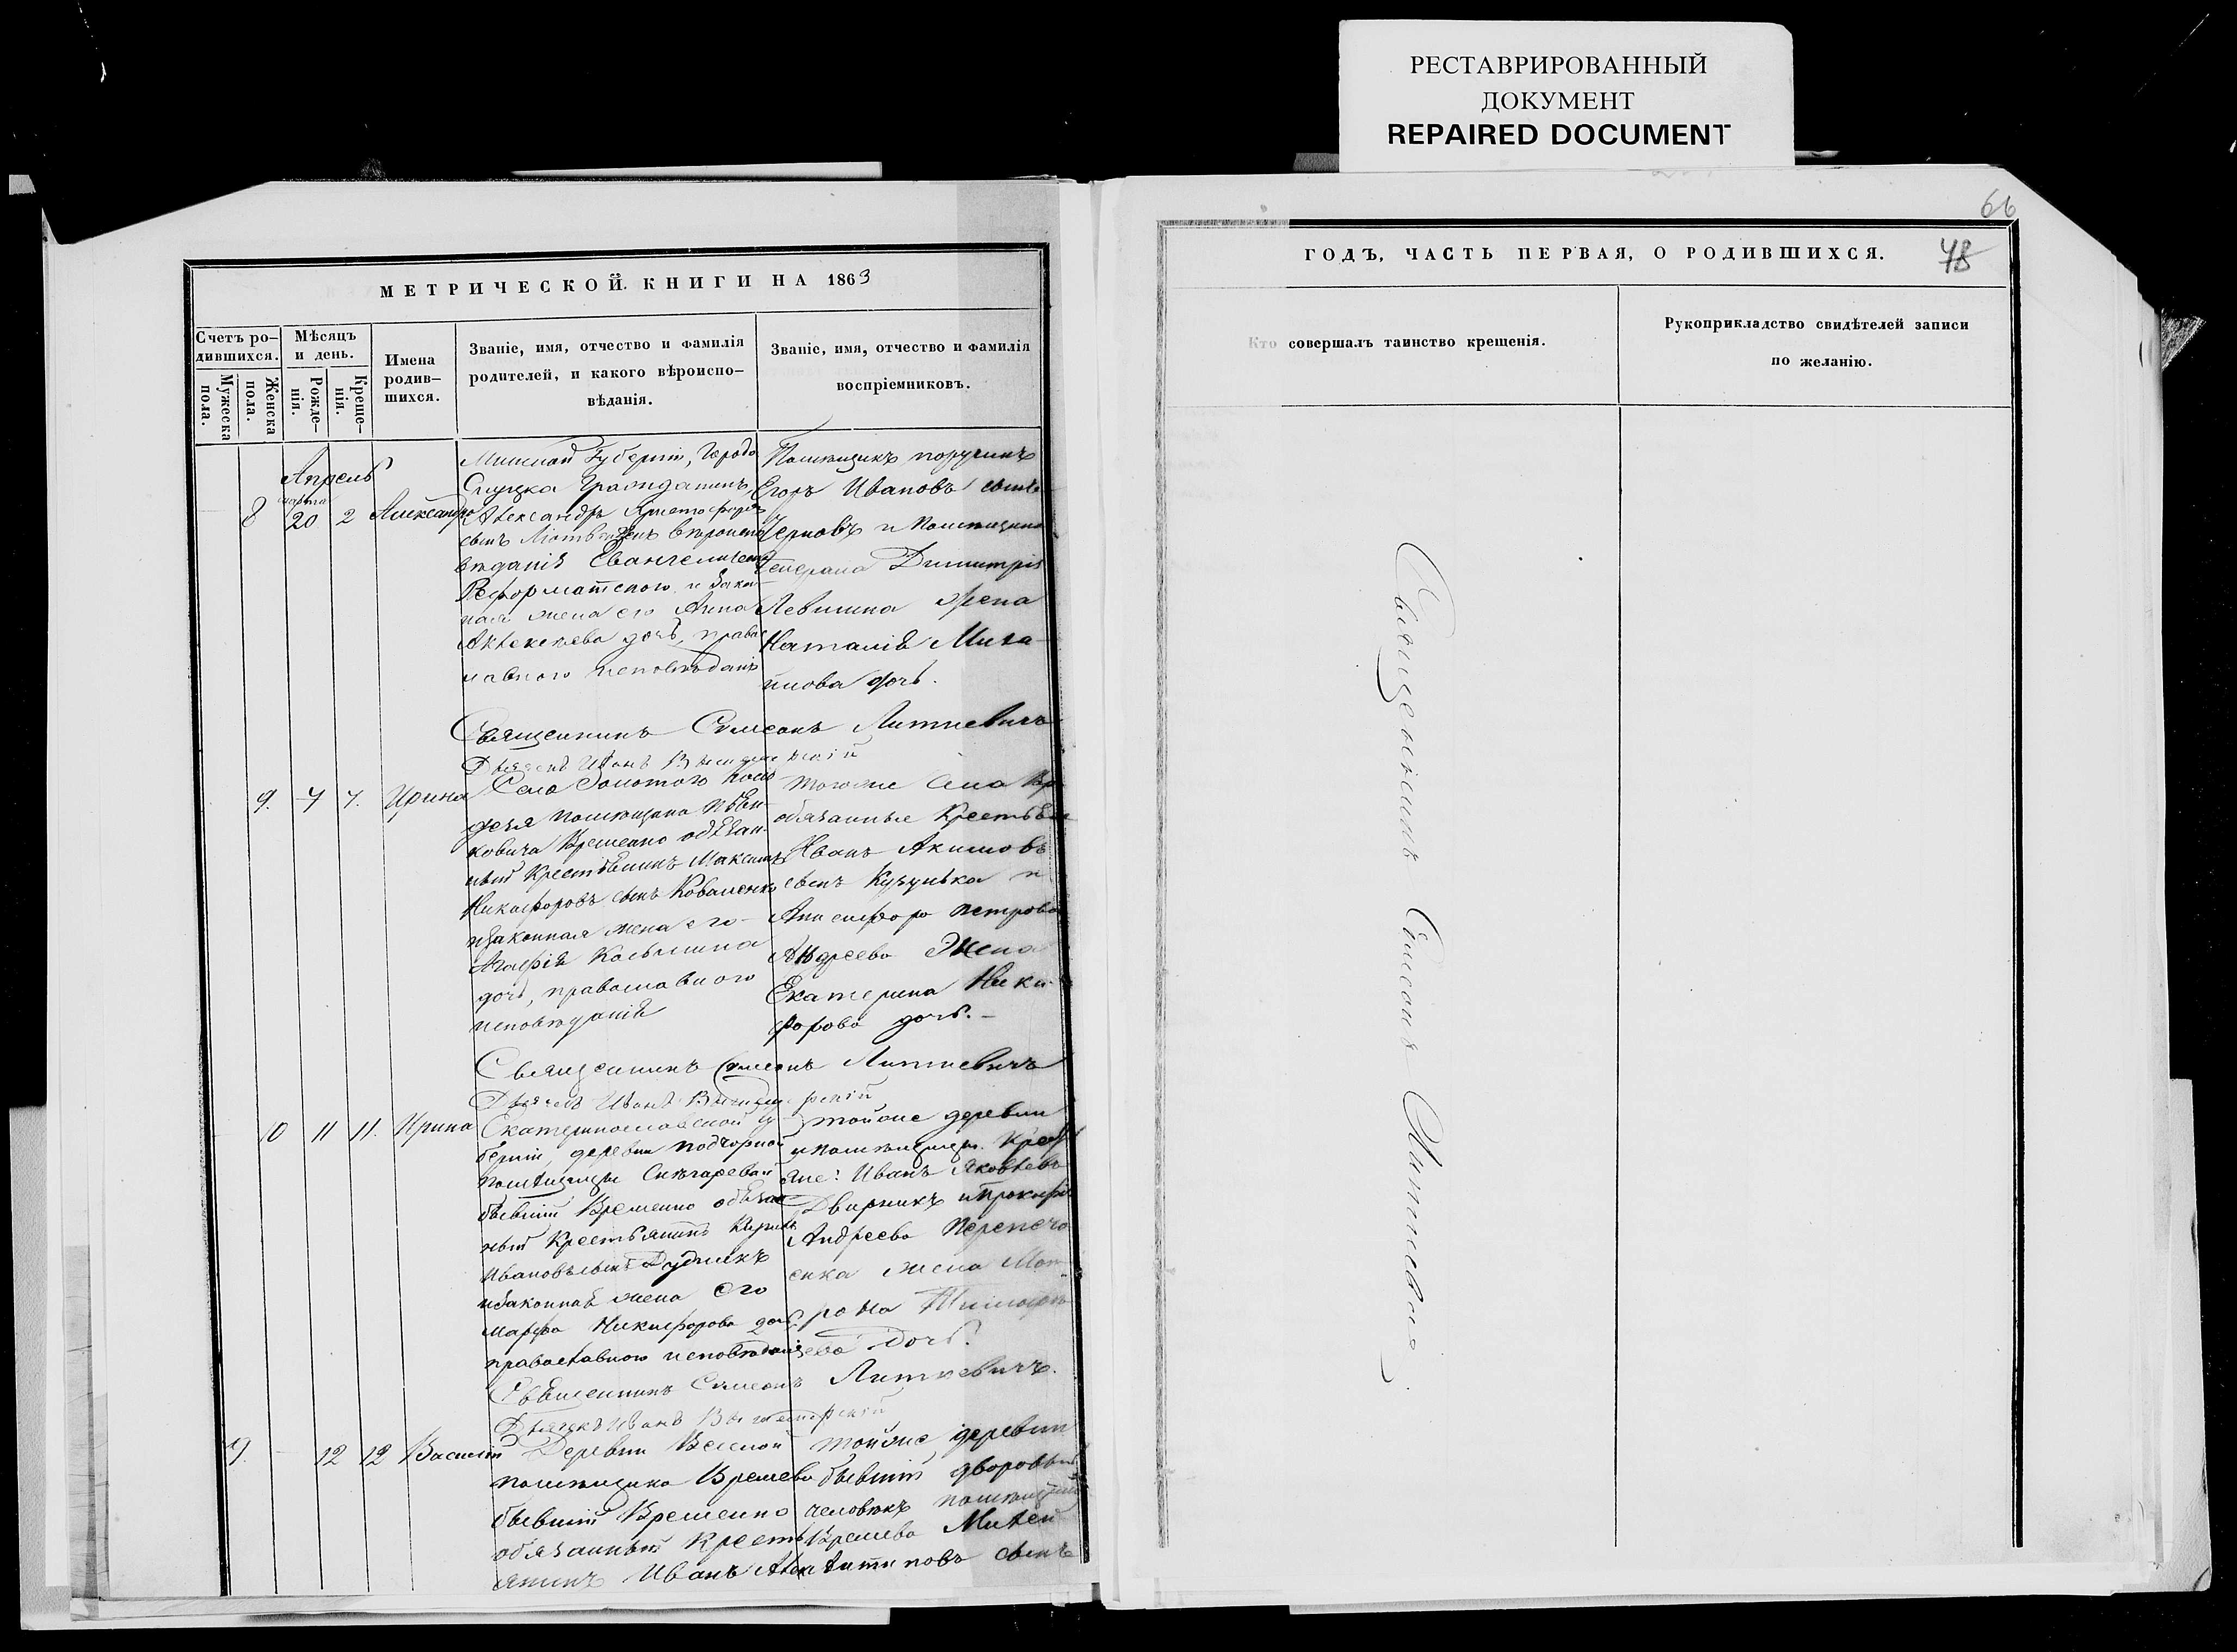 РЕСТАВРИРОВАННЫЙ
ДОКУМЕНТ
REPAIRED DOCUMENT
МЕТРИЧЕСКОЙ КНИГИ НА 1863
Счетъ ро-
дившихся.
Мужеска
пола.
Женска
пола.
Мѣсяцъ
и день.
Рожде-
нія.
Креще-
нія.
Имена
родив-
шихся.
Званіе, имя, отчество и фамилія
родителей, и какого вѣроиспо-
вѣданія.
Званіе, имя, отчество и фамилія
воспріемниковъ.
Апрель
8
марта
20
2
Александра
Минской Губерніи, Города
Слуцка Гражданинъ
Александръ
сынъ
вѣданія Евангелическо
Реформатскаго и Закон
ная жена его Анна
Алексѣева дочь, правос
лавнаго исповѣданія
Помѣщикъ поручикъ
Егоръ Ивановъ сынъ
Черновъ и Помѣщика
Генерала Димитрія
Левшина жена
Наталія Миха
илова дочь.
Священникъ Симеонъ Литкевичъ
Дьячекъ Иванъ
9.
7
7.
Ирина
Села Золотого Коло
дезя помѣщика
ковича Временно обязан
ный Крестьянинъ Максимъ
Никифоровъ сынъ Коваленко
и законная жена его
Агафія Косьмина
дочь, православного
исповѣданія
тогоже села Вр
обязанные Крестьяне
Иванъ Акимовъ
сынъ Кузулька и
Петрова
Андреева жена
Екатерина Ники
форова дочь.
Священникъ Симеонъ Литкевичъ
Дьячекъ Иванъ
10
11
11.
Ирина
Екатеринославской гу
берніи, деревни подгорной
помѣщицы Снѣгаревой
бывшій Временно обязан
ный Крестьянинъ Кирилъ
Ивановъ сынъ Рудникъ
и законная жена его
Марфа Никифорова дочь
православного исповѣданія
тойже деревни
и помѣщицы Крест
яне: Иванъ Яковлевъ
Дворникъ и Прокофія
Андреева Перепечо
енка жена Мат
рона Тимофѣ
ева дочь.
Священникъ Симеонъ Литкевичъ.
Дьячекъ Иванъ
9.
12
12
Василій
Деревни Веселой
помѣщика Ерешева
бывшій Временно
обязанный Кресть
янинъ Иванъ
тойже деревни
бывшій дворовый
человѣкъ помѣщика
Ерешева
Антиповъ сынъ
66
48
ГОДЪ, ЧАСТЬ ПЕРВАЯ, О РОДИВШИХСЯ.
Кто совершалъ таинство крещенія.
Рукоприкладство свидѣтелей записи
по желанію.
Священникъ Симеонъ Литкевичъ.